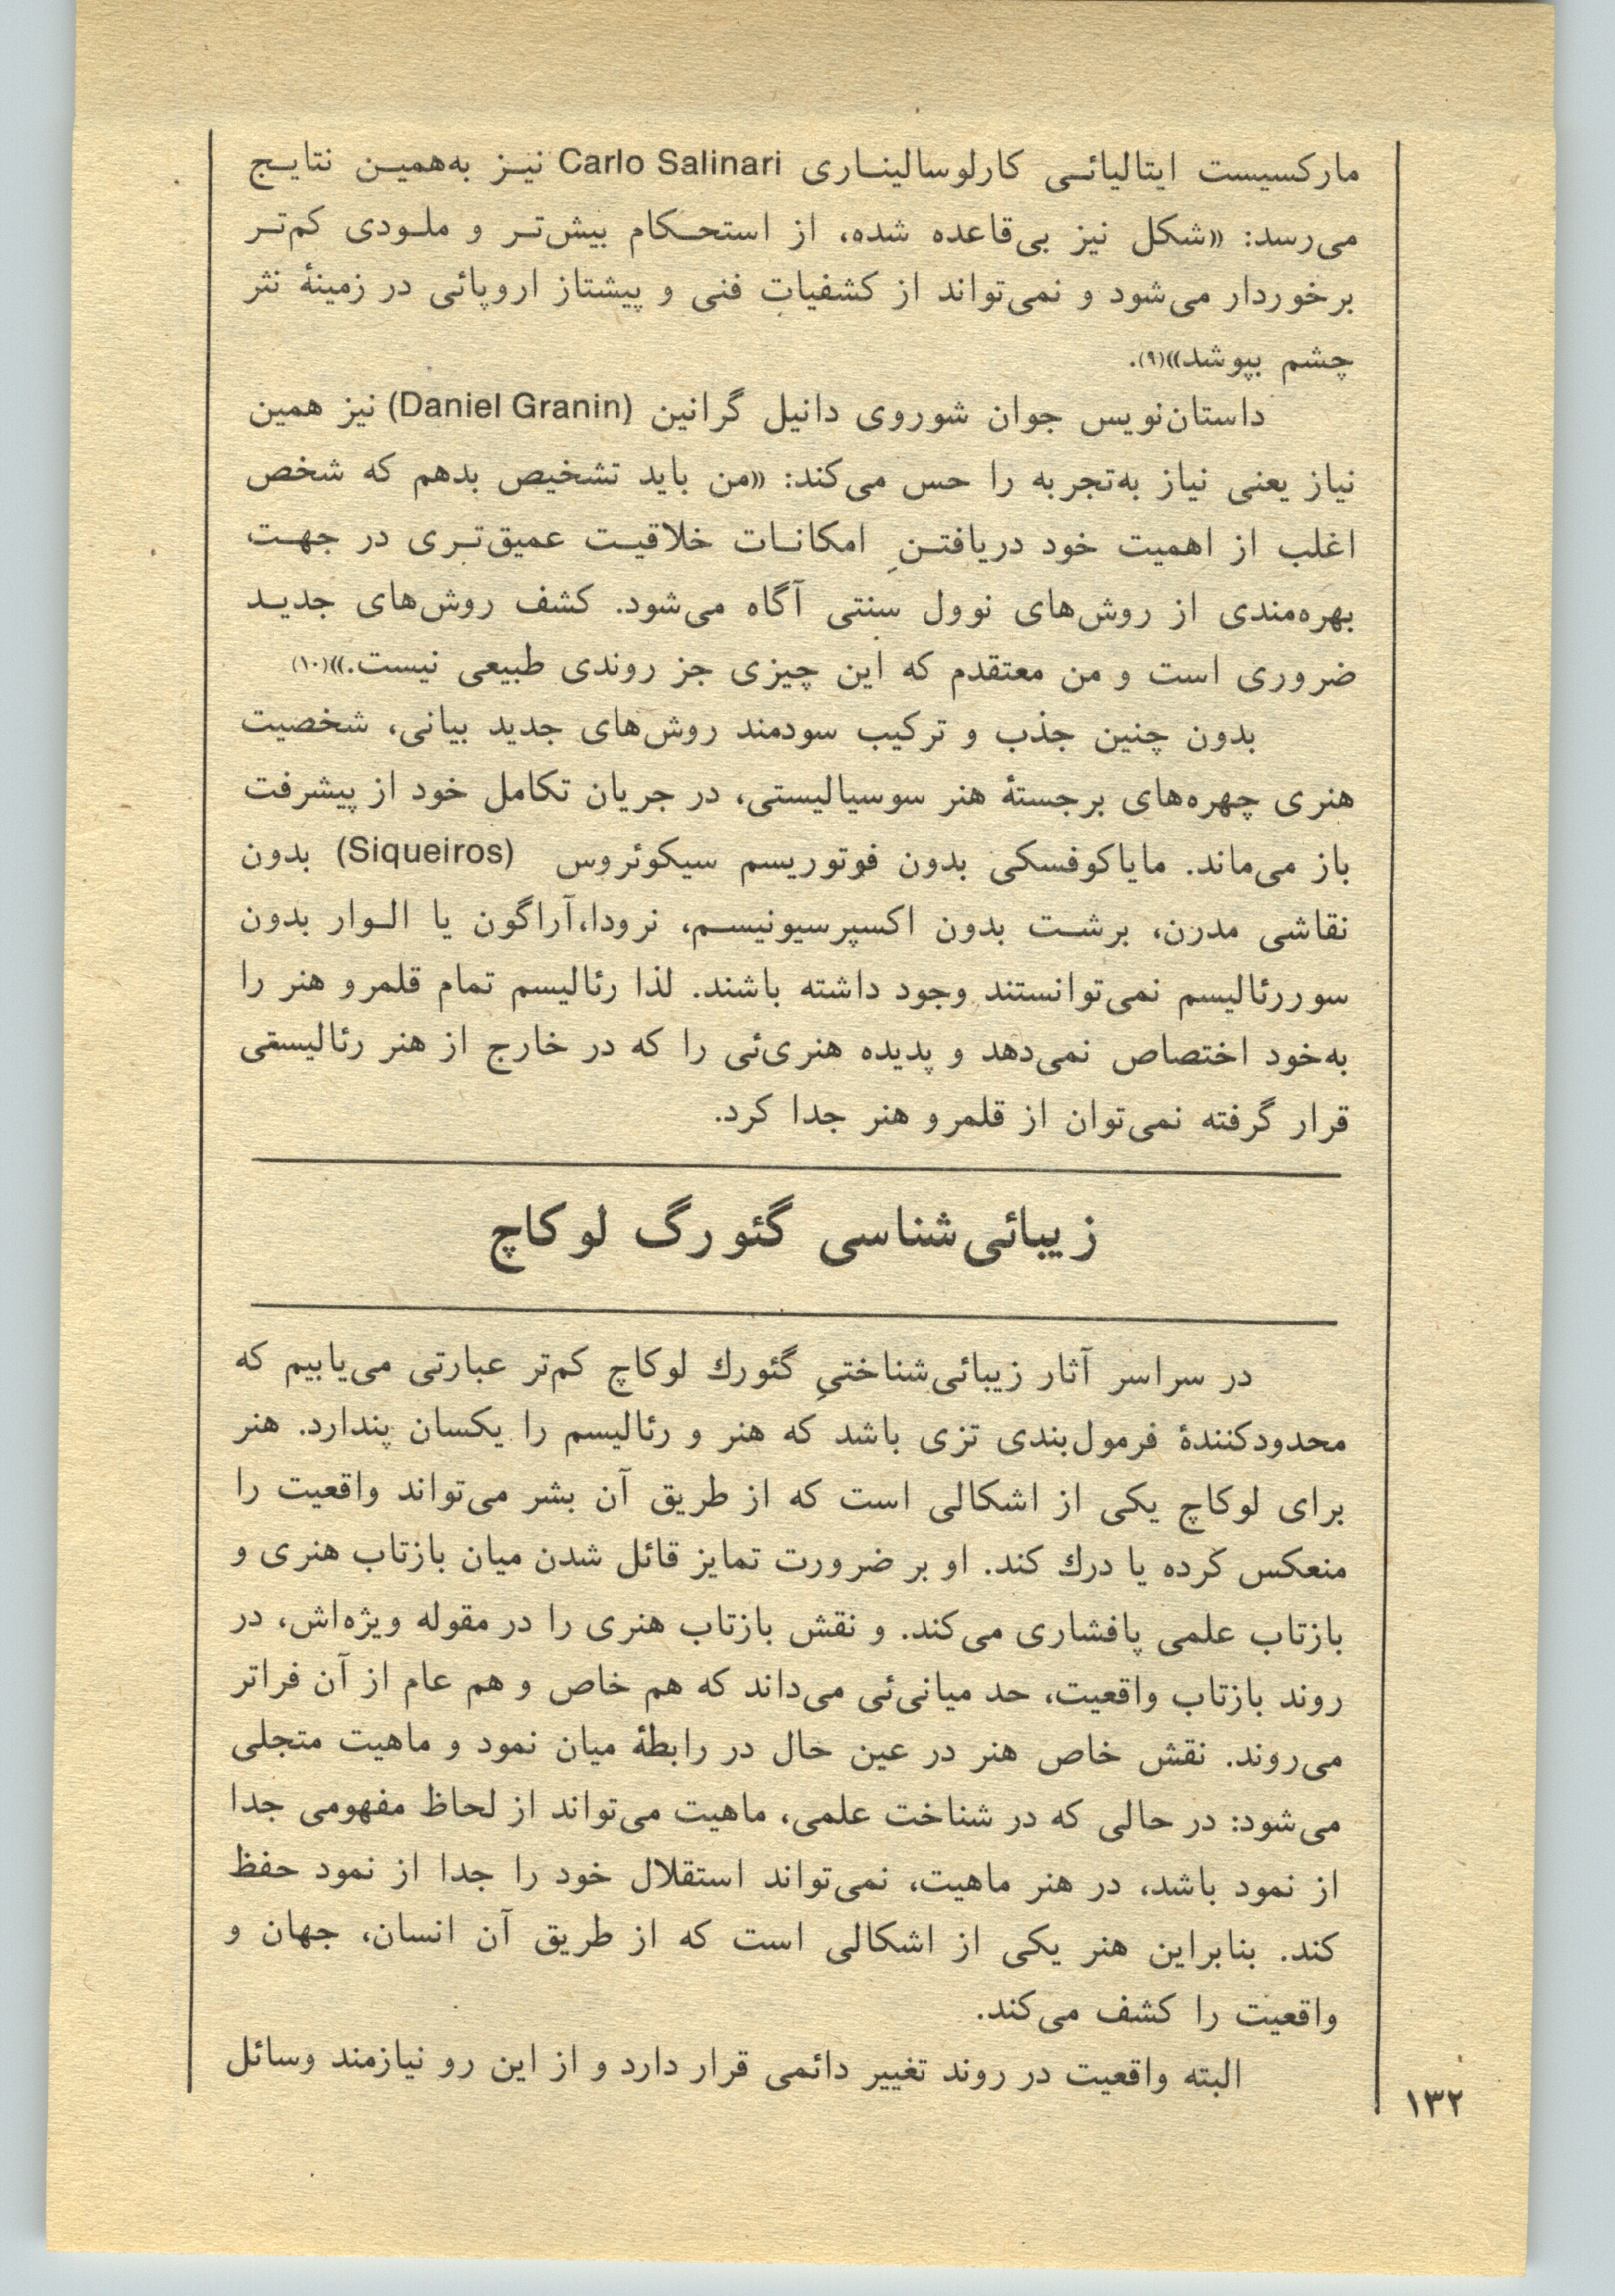 مارکسیست ایتالیائی کارلوسالیناری Carlo Salinari نیز به‌همین نتایج
می‌رسد: «شکل نیز بی‌قاعده شده، از استحکام بیش‌تر و ملودی کم‌تر
برخوردار می‌شود و نمی‌تواند از کشفیات فنی و پیشتاز اروپائی در زمینهٔ نثر
چشم بپوشد»(۹).
داستان‌نویس جوان شوروی دانیل گرانین (Daniel Granin) نیز همین
نیاز یعنی نیاز به‌تجربه را حس می‌کند: «من باید تشخیص بدهم که شخص
اغلب از اهمیت خود دریافتنِ امکانات خلاقیت عمیق‌تری در جهت
بهره‌مندی از روش‌های نوول سنتی آگاه می‌شود. کشف روش‌های جدید
ضروری است و من معتقدم که این چیزی جز روندی طبیعی نیست.»(۱۰)
بدون چنین جذب و ترکیب سودمند روش‌های جدید بیانی، شخصیت
هنری چهره‌های برجستهٔ هنر سوسیالیستی، در جریان تکامل خود از پیشرفت
باز می‌ماند. مایاکوفسکی بدون فوتوریسم سیکوئروس (Siqueiros) بدون
نقاشی مدرن، برشت بدون اکسپرسیونیسم، نرودا،آراگون یا الوار بدون
سوررئالیسم نمی‌توانستند وجود داشته باشند. لذا رئالیسم تمام قلمرو هنر را
به‌خود اختصاص نمی‌دهد و پدیده هنری‌ئی را که در خارج از هنر رئالیستی
قرار گرفته نمی‌توان از قلمرو هنر جدا کرد.
زیبائی‌شناسی گئورگ لوکاچ
در سراسر آثار زیبائی‌شناختیِ گئورك لوکاچ کم‌تر عبارتی می‌یابیم که
محدودکنندهٔ فرمول‌بندی تزی باشد که هنر و رئالیسم را یکسان پندارد. هنر
برای لوکاچ یکی از اشکالی است که از طریق آن بشر می‌تواند واقعیت را
منعکس کرده یا درك کند. او بر ضرورت تمایز قائل شدن میان بازتاب هنری و
بازتاب علمی پافشاری می‌کند. و نقش بازتاب هنری را در مقوله ویژه‌اش، در
روند بازتاب واقعیت، حد میانی‌ئی می‌داند که هم خاص و هم عام از آن فراتر
می‌روند. نقش خاص هنر در عین حال در رابطهٔ میان نمود و ماهیت متجلی
می‌شود: در حالی که در شناخت علمی، ماهیت می‌تواند از لحاظ مفهومی جدا
از نمود باشد، در هنر ماهیت، نمی‌تواند استقلال خود را جدا از نمود حفظ
کند. بنابراین هنر یکی از اشکالی است که از طریق آن انسان، جهان و
واقعیت را کشف می‌کند.
البته واقعیت در روند تغییر دائمی قرار دارد و از این رو نیازمند وسائل
۱۳۲